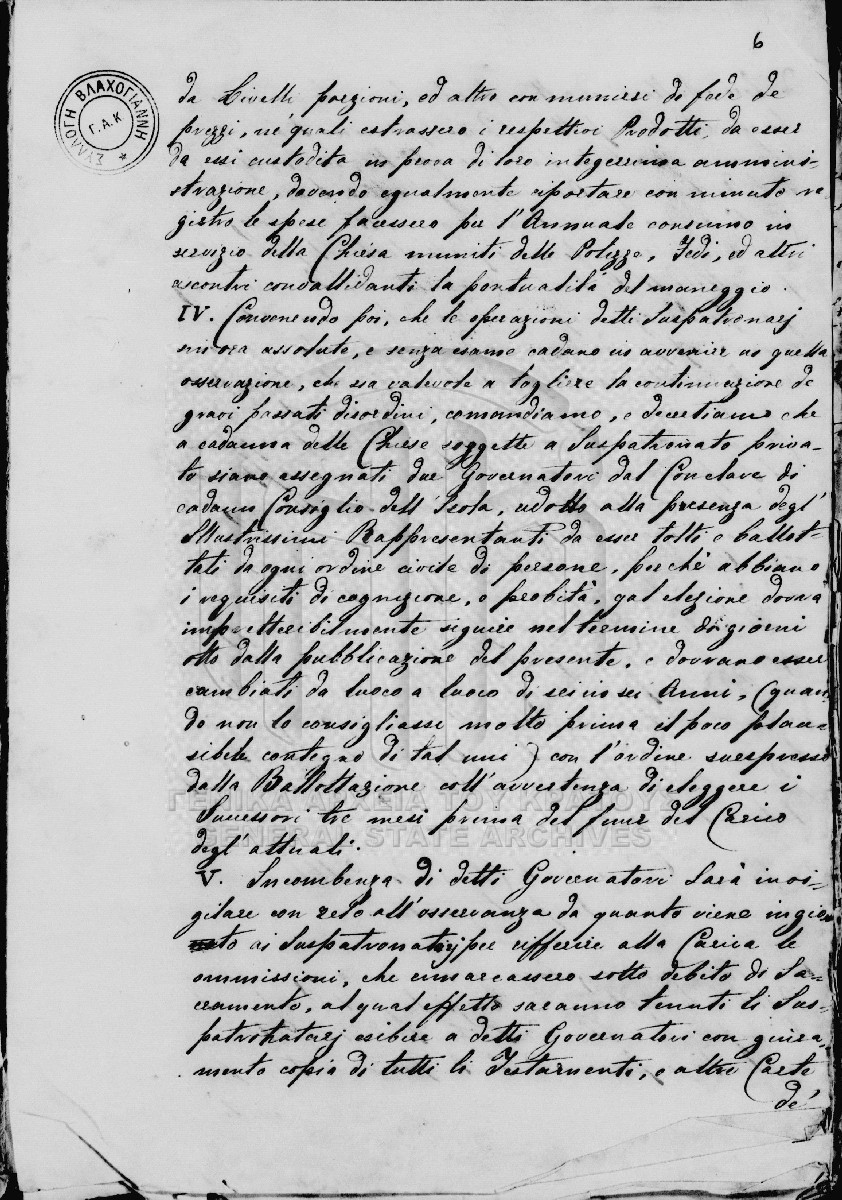 6
ΣΥΛΛΟΓΗ ΒΛΑΧΟΓΙΑΝΝΗ
Γ.Α.Κ
da Livelli porzioni, ed altro con munirsi di fede de
prezzi, ne' quali estrassero i respettivi Prodotti, da esser
da essi custodita in prova di loro integerrima ammini-
strazione, dovendo egualmente riportare con minuto re-
gistro le spese facessero per l'Annuale consumo in
servizio della Chiesa muniti delle Polizze, Fedi, ed altri
ascontri convallidanti la pontualità del maneggio.
IV. Convenendo poi, che le operazioni delli Juspatronarj
sin ora assolute, e senza esame cadano in avvenire in quella
osservazione, che sia valevole a togliere la continuazione de
gravi passati disordini, comandiamo, e decretiamo che
a cadauna delle Chiese soggette a Juspatronato priva-
to siano assegnati due Governatori dal Conclave di
cadaun Consiglio dell'Isola, ridotto alla presenza degl'
Illustrissimi Rappresentanti da esser tolti e ballot-
tati da ogni ordine civile di persone, perchè abbiano
i requisiti di cognizione, e probità, qual elezione dovrà
impretteribilmente siguire nel termine di giorni
otto dalla pubblicazione del presente, e dovranno esser
cambiati da luoco a luoco di sei in sei Anni, (quan-
do non lo consigliasse molto prima il poco plau-
sibile contegno di tal uni) con l'ordine suespresso
dalla Ballottazione coll'avvertenza di eleggere i
Successori tre mesi prima del finir del Carico
degl'attuali.
ΓΕΝΙΚΑ ΑΡΧΕΙΑ ΤΟΥ ΚΡΑΤΟΥΣ
GENERAL STATE ARCHIVES
V. Incombenza di detti Governatori sarà invi-
gilare con zelo all'osservanza da quanto viene ingion
to ai Juspatronatarj per rifferire alla Carica le
ommissioni, che rimarcassero sotto debito di Sa-
cramento, al qual effetto saranno tenuti li Jus-
patronatarj esibire a detti Governatori con giura-
mento copia di tutti li Testamenti, e altri Carte
de'